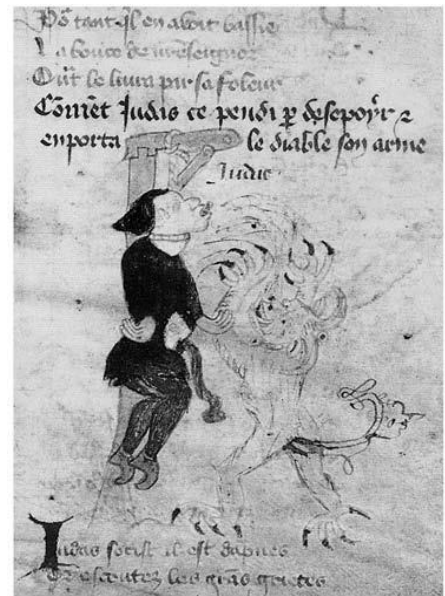 Po' tant il en avoit baisie
La bouce de nreseignor
Qūt le livra pur sa foleur
Cōmēt Judas ce pendi p̄ desepoyr ⁊
enporta le diable son arme
Judas
Judas fotist il est dapnes
Or escoutez les grās grietes